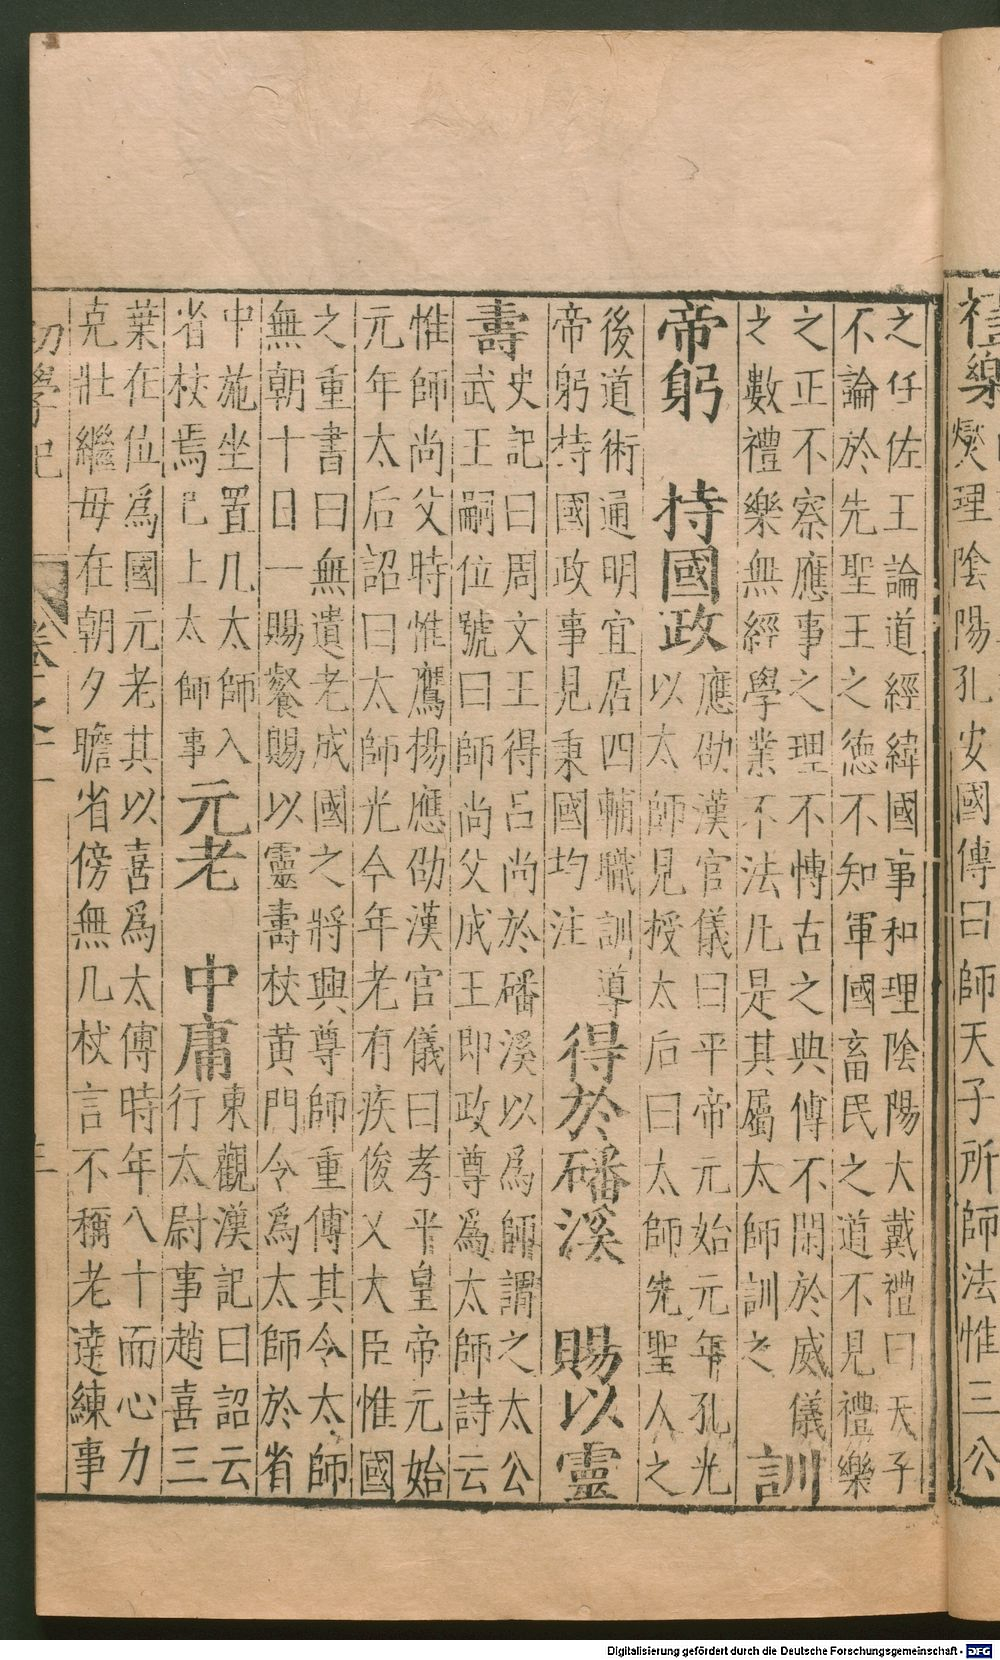 禮樂
燮理陰陽孔安國傳曰師天子所師法惟三公
之任佐王論道經緯國事和理陰陽大戴禮曰天子
不論於先聖王之德不知軍國畜民之道不見禮樂
之正不察應事之理不慱古之典傳不閑於威儀
之數禮樂無經學業不法凡是其屬太師訓之
訓
帝躬 持國政
應劭漢官儀曰平帝元始元年孔光
以太師見授太后曰太師先聖人之
後道術通明宜居四輔職訓導
帝躬持國政事見秉國均注
得於磻溪 賜以靈
壽
史記曰周文王得呂尚於磻溪以為師謂之太公
武王嗣位號曰師尚父成王即政尊為太師詩云
惟師尚父時惟鷹揚應劭漢官儀曰孝平皇帝元始
元年太后詔曰太師光今年老有疾俊乂大臣惟國
之重書曰無遺老成國之將興尊師重傅其令太師
無朝十日一賜餐賜以靈壽杖黃門令為太師於省
中施坐置几太師入
省杖焉已上太師事
元老 中庸
東觀漢記曰詔云
行太尉事趙喜三
葉在位為國元老其以喜為太傅時年八十而心力
克壯繼母在朝夕瞻省傍無几杖言不稱老達練事
初學記
卷之十一
三
Digitalisierung gefördert durch die Deutsche Forschungsgemeinschaft - DFG